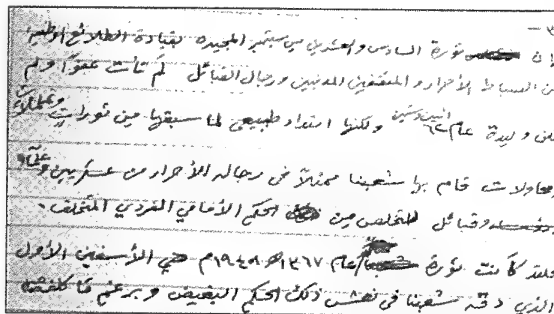 ٣ -
إن ثورة السادس والعشرين من سبتمبر المجيده بقيادة الطلائع الوطنية
من الضباط الأحرار و المثقفين المدنيين ورجال القبائل لم تأت عفواً ولم
تكن وليدة عام ٦٢ اثنين وستين ولكنها امتداد طبيعي لما سبقها من ثورات
ومحاولات قام بها شعبنا ممثلاً في رجاله الأحرار من عسكريين وعلماء
وقبائل للتخلص من الحكم الأمامي الفردي المتخلف .
فلقد كانت ثورة عام ١٣٦٧هـ ١٩٤٨م هي الأسفين الأول
الذي دقه شعبنا في نعش ذلك الحكم البغيض وبرغم ما كلفته